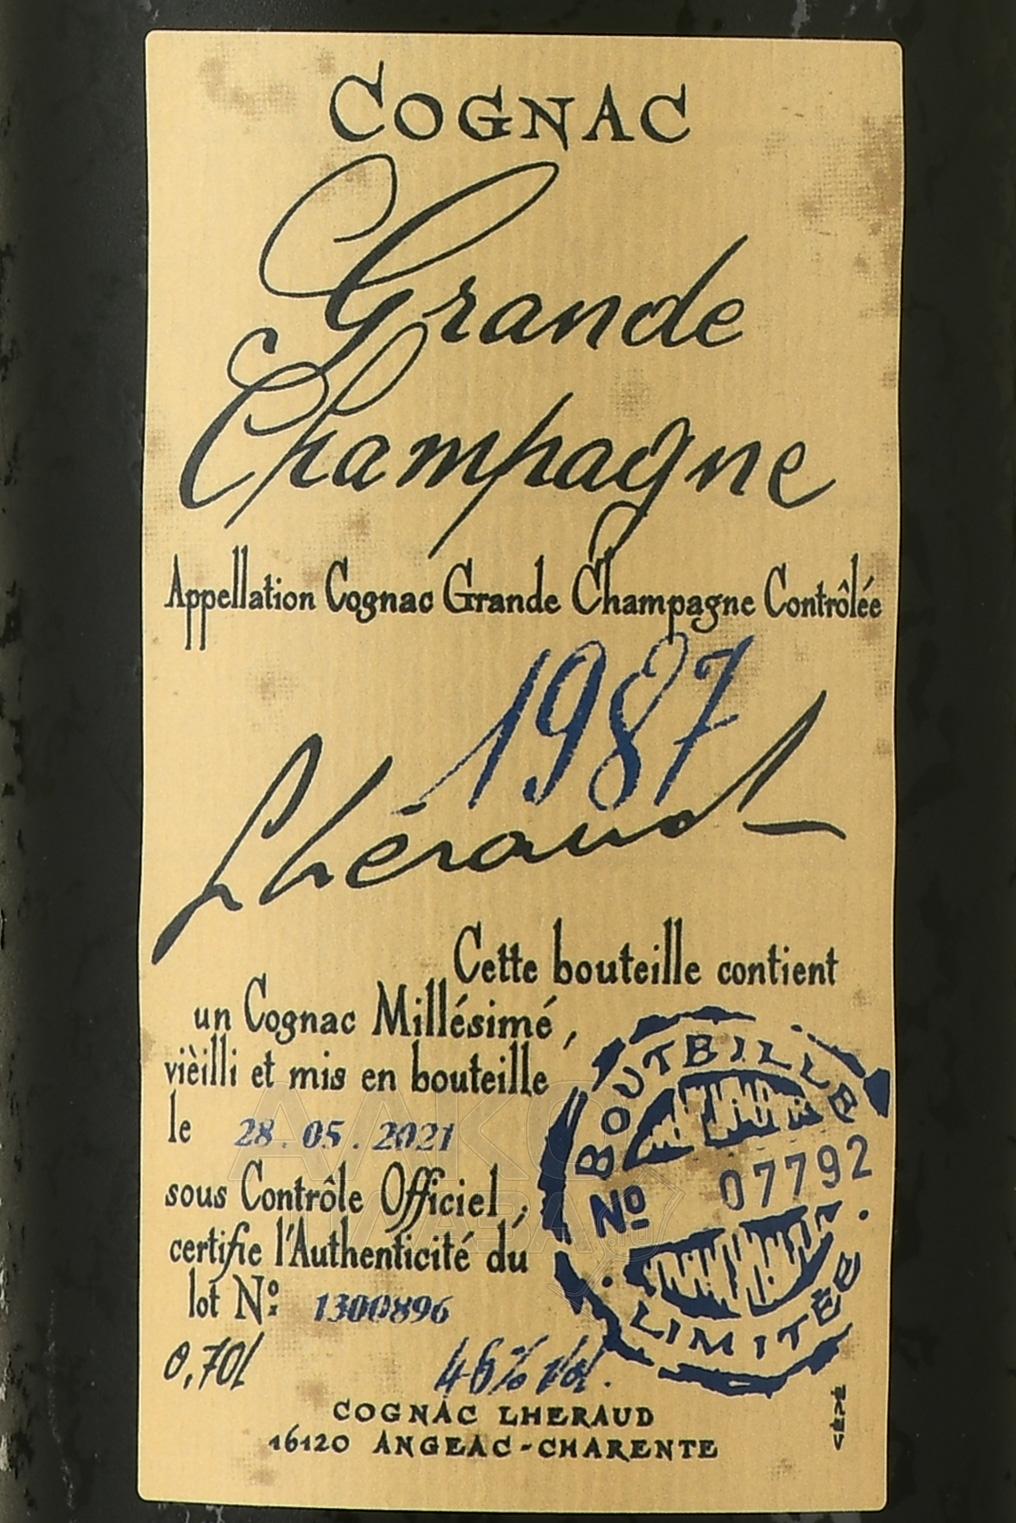 COGNAC
Grande
Champagne
Appellation Cognac Grande Champagne Contrôlée
1987
Lhéraud
Cette bouteille contient
un Cognac Millésimé,
vièilli et mis en bouteille
le 28.05.2021
sous Contrôle Officiel,
certifie l'Authenticité du
lot Nº 1300896
BOUTEILLE
Nº 07792
LIMITÉE
0,70l 46% Vol.
COGNAC LHERAUD
16120 ANGEAC-CHARENTE